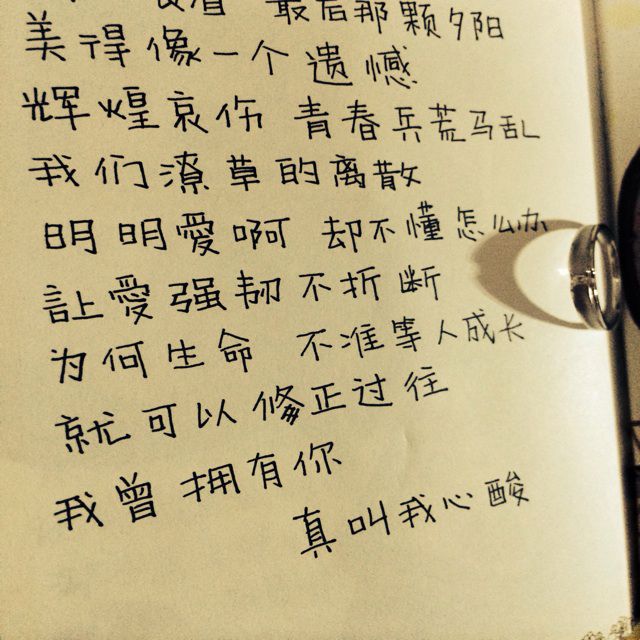 最后那颗夕阳
美得像一个 遗憾
辉煌哀伤 青春兵荒马乱
我们潦草的离散
明明愛啊 却不懂怎么办
讓愛强韧不折断
为何生命 不准等人成长
就可以修正过往
我曾拥有你
真叫我心酸